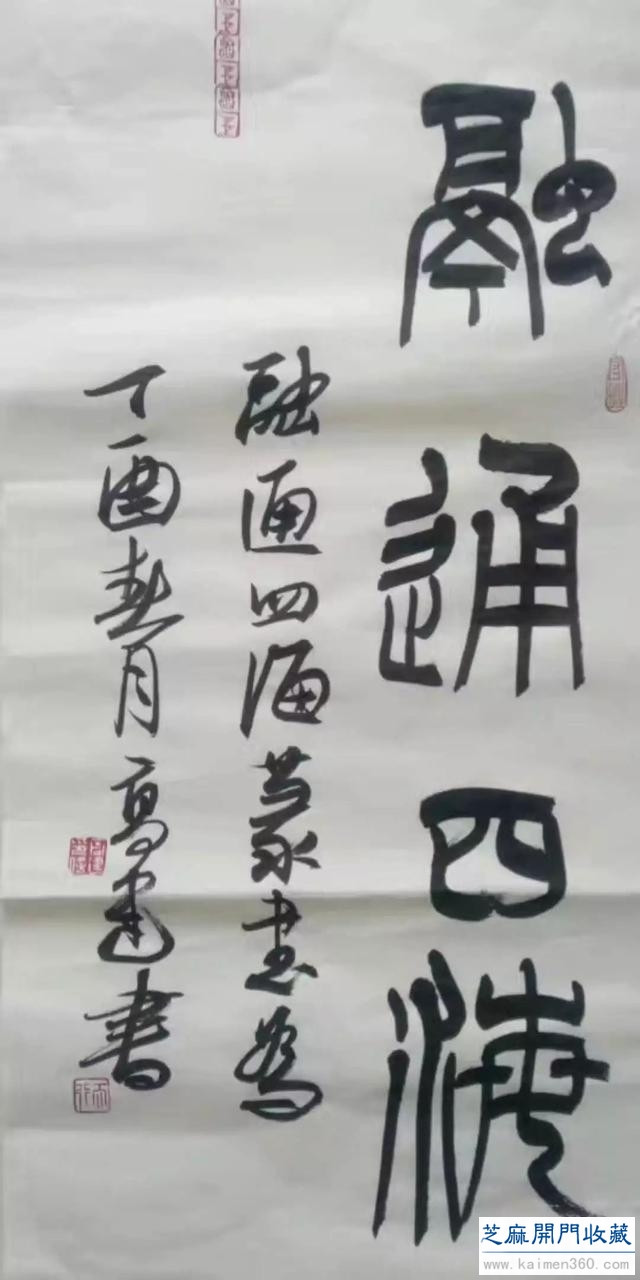 融通四海
融通四海篆书为
丁酉春月高建书
芝麻開門收藏
www.kaimen360.com